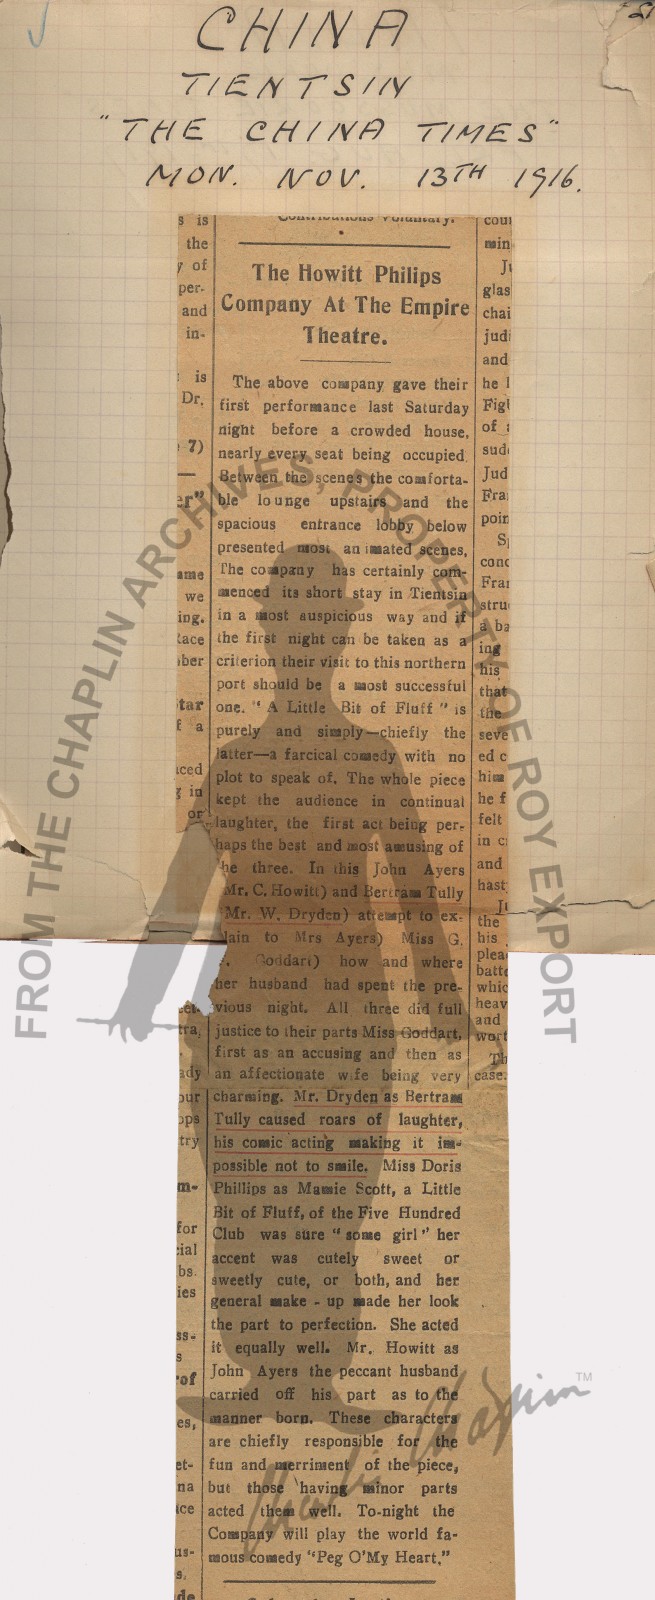 CHINA
TIENTSIN
"THE CHINA TIMES"
MON. NOV. 13TH 1916.
Contributions voluntary.
The Howitt Philips
Company At The Empire
Theatre.
The above company gave their
first performance last Saturday
night before a crowded house,
nearly every seat being occupied.
Between the scenes the comforta-
ble lounge upstairs and the
spacious entrance lobby below
presented most animated scenes.
The company has certainly com-
menced its short stay in Tientsin
in a most auspicious way and if
the first night can be taken as a
criterion their visit to this northern
port should be a most successful
one. "A Little Bit of Fluff" is
purely and simply—chiefly the
latter—a farcical comedy with no
plot to speak of. The whole piece
kept the audience in continual
laughter, the first act being per-
haps the best and most amusing of
the three. In this John Ayers
(Mr. C. Howitt) and Bertram Tully
(Mr. W. Dryden) attempt to ex-
plain to Mrs Ayers) Miss G.
Goddart) how and where
her husband had spent the pre-
vious night. All three did full
justice to their parts Miss Goddart,
first as an accusing and then as
an affectionate wife being very
charming. Mr. Dryden as Bertram
Tully caused roars of laughter,
his comic acting making it im-
possible not to smile. Miss Doris
Phillips as Mamie Scott, a Little
Bit of Fluff, of the Five Hundred
Club was sure "some girl" her
accent was cutely sweet or
sweetly cute, or both, and her
general make-up made her look
the part to perfection. She acted
it equally well. Mr. Howitt as
John Ayers the peccant husband
carried off his part as to the
manner born. These characters
are chiefly responsible for the
fun and merriment of the piece,
but those having minor parts
acted them well. To-night the
Company will play the world fa-
mous comedy "Peg O'My Heart."
FROM THE CHAPLIN ARCHIVES, PROPERTY OF ROY EXPORT
Charlie Chaplin TM